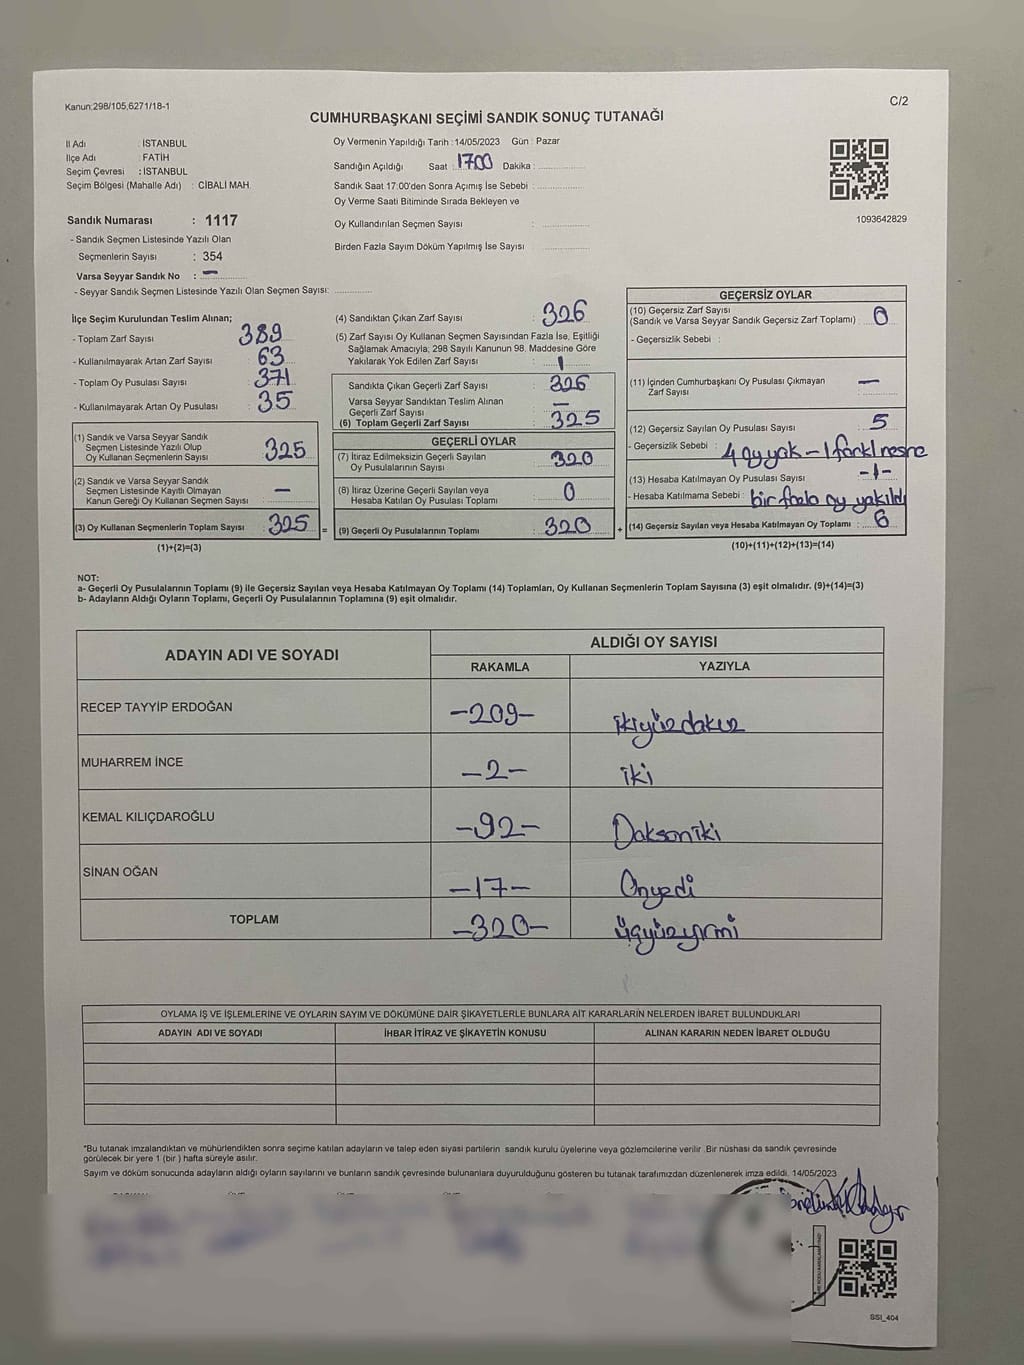 Kanun:298/105,6271/18-1
C/2
CUMHURBAŞKANI SEÇİMİ SANDIK SONUÇ TUTANAĞI
İl Adı : İSTANBUL
İlçe Adı : FATİH
Seçim Çevresi : İSTANBUL
Seçim Bölgesi (Mahalle Adı) : CİBALİ MAH.
Sandık Numarası : 1117
- Sandık Seçmen Listesinde Yazılı Olan
Seçmenlerin Sayısı : 354
Varsa Seyyar Sandık No : –
- Seyyar Sandık Seçmen Listesinde Yazılı Olan Seçmen Sayısı: ..............
Oy Vermenin Yapıldığı Tarih : 14/05/2023 Gün : Pazar
Sandığın Açıldığı Saat : 1700 Dakika : ..............
Sandık Saat 17:00'den Sonra Açımış İse Sebebi : ..............
Oy Verme Saati Bitiminde Sırada Bekleyen ve
Oy Kullandırılan Seçmen Sayısı : ..............
Birden Fazla Sayım Döküm Yapılmış İse Sayısı ..............
1093642829
İlçe Seçim Kurulundan Teslim Alınan;
- Toplam Zarf Sayısı : 389
- Kullanılmayarak Artan Zarf Sayısı : 63
- Toplam Oy Pusulası Sayısı : 371
- Kullanılmayarak Artan Oy Pusulası : 35
(1) Sandık ve Varsa Seyyar Sandık
Seçmen Listesinde Yazılı Olup
Oy Kullanan Seçmenlerin Sayısı : 325
(2) Sandık ve Varsa Seyyar Sandık
Seçmen Listesinde Kayıtlı Olmayan
Kanun Gereği Oy Kullanan Seçmen Sayısı : –
(3) Oy Kullanan Seçmenlerin Toplam Sayısı : 325 =
(1)+(2)=(3)
(4) Sandıktan Çıkan Zarf Sayısı : 326
(5) Zarf Sayısı Oy Kullanan Seçmen Sayısından Fazla İse, Eşitliği
Sağlamak Amacıyla, 298 Sayılı Kanunun 98. Maddesine Göre
Yakılarak Yok Edilen Zarf Sayısı : 1
Sandıkta Çıkan Geçerli Zarf Sayısı : 326
Varsa Seyyar Sandıktan Teslim Alınan
Geçerli Zarf Sayısı : –
(6) Toplam Geçerli Zarf Sayısı : 325
GEÇERLİ OYLAR
(7) İtiraz Edilmeksizin Geçerli Sayılan
Oy Pusulalarının Sayısı : 320
(8) İtiraz Üzerine Geçerli Sayılan veya
Hesaba Katılan Oy Pusulası Toplamı : 0
(9) Geçerli Oy Pusulalarının Toplamı : 320 +
GEÇERSİZ OYLAR
(10) Geçersiz Zarf Sayısı
(Sandık ve Varsa Seyyar Sandık Geçersiz Zarf Toplamı) : 0
- Geçersizlik Sebebi :
(11) İçinden Cumhurbaşkanı Oy Pusulası Çıkmayan
Zarf Sayısı : –
(12) Geçersiz Sayılan Oy Pusulası Sayısı : 5
- Geçersizlik Sebebi : 4 oy yok – 1 farklı nesne
(13) Hesaba Katılmayan Oy Pusulası Sayısı -1-
- Hesaba Katılmama Sebebi : bir fazla oy yakıldı
(14) Geçersiz Sayılan veya Hesaba Katılmayan Oy Toplamı : 6
(10)+(11)+(12)+(13)=(14)
NOT:
a- Geçerli Oy Pusulalarının Toplamı (9) ile Geçersiz Sayılan veya Hesaba Katılmayan Oy Toplamı (14) Toplamları, Oy Kullanan Seçmenlerin Toplam Sayısına (3) eşit olmalıdır. (9)+(14)=(3)
b- Adayların Aldığı Oyların Toplamı, Geçerli Oy Pusulalarının Toplamına (9) eşit olmalıdır.
ADAYIN ADI VE SOYADI ALDIĞI OY SAYISI
RAKAMLA YAZIYLA
RECEP TAYYİP ERDOĞAN -209- ikiyüzdokuz
MUHARREM İNCE -2- iki
KEMAL KILIÇDAROĞLU -92- Doksaniki
SİNAN OĞAN -17- Onyedi
TOPLAM -320- üçyüzyirmi
OYLAMA İŞ VE İŞLEMLERİNE VE OYLARIN SAYIM VE DÖKÜMÜNE DAİR ŞİKAYETLERLE BUNLARA AİT KARARLARIN NELERDEN İBARET BULUNDUKLARI
ADAYIN ADI VE SOYADI İHBAR İTİRAZ VE ŞİKAYETİN KONUSU ALINAN KARARIN NEDEN İBARET OLDUĞU
*Bu tutanak imzalandıktan ve mühürlendikten sonra seçime katılan adayların ve talep eden siyasi partilerin sandık kurulu üyelerine veya gözlemcilerine verilir. Bir nüshası da sandık çevresinde
görülecek bir yere 1 (bir) hafta süreyle asılır.
Sayım ve döküm sonucunda adayların aldığı oyların sayılarını ve bunların sandık çevresinde bulunanlara duyurulduğunu gösteren bu tutanak tarafımızdan düzenlenerek imza edildi. 14/05/2023
SSI_404